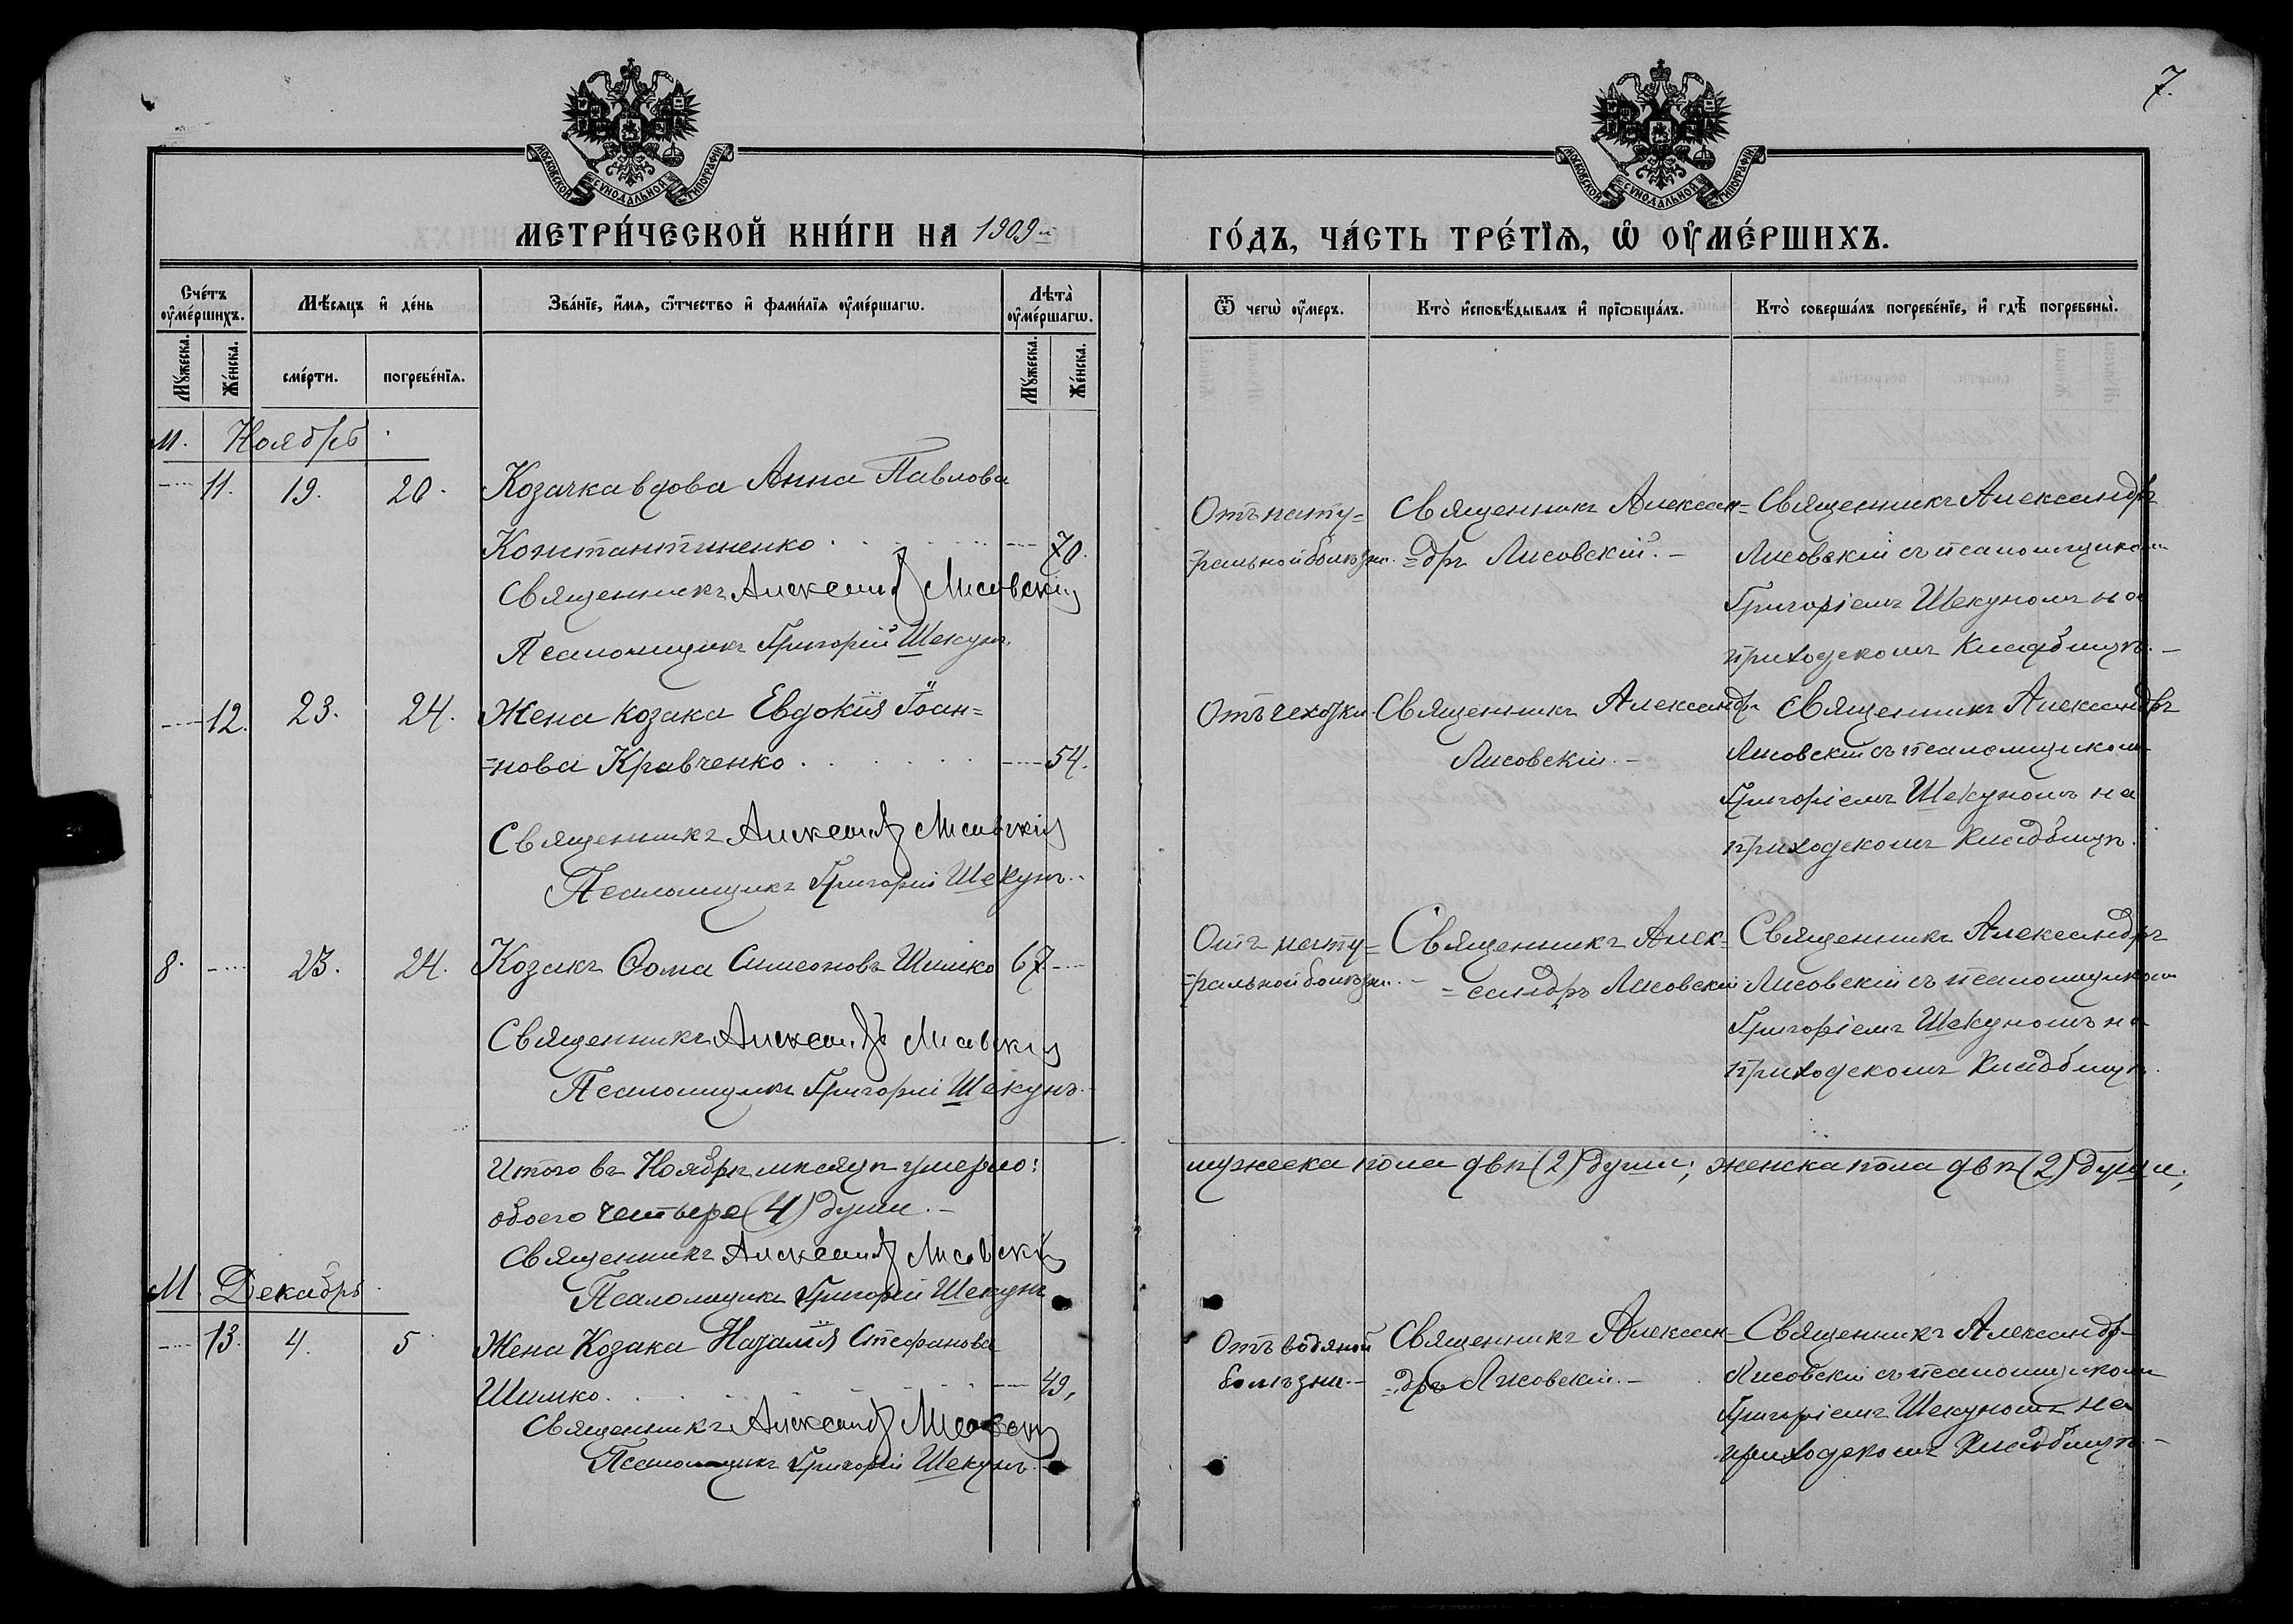 7.
МОСКОВСКОЙ СѴНОДАЛЬНОЙ ТИПОГРАФІИ
МОСКОВСКОЙ СѴНОДАЛЬНОЙ ТИПОГРАФІИ
МЕТРИ́ЧЕСКОЙ КНИ́ГИ НА 1909й
ГО́ДЪ, ЧА́СТЬ ТРЕ́ТЇѦ, Ѡ҆ ОУ҆МЕ́РШИХЪ.
Сче́тъ оу҆ме́ршихъ.
Мѣ́сяцъ и҆ де́нь
Зва́нїе, и҆́мя, ѻ҆́тчество и҆ фами́лїя оу҆ме́ршагѡ.
Лѣ́та оу҆ме́ршагѡ.
Ѿ чегѡ̀ оу҆́меръ.
Кто̀ и҆сповѣ́дывалъ и҆ прїѡбща́лъ.
Кто̀ соверша́лъ погребе́нїе, и҆ гдѣ̀ погребены̀.
Мꙋ́жеска.
Же́нска.
сме́рти.
погребе́нїя.
Мꙋ́жеска.
Же́нска.
М. Ноябрь
11. 19. 20. Козачка вдова Анна Павлова
Константиненко 70.
Священникъ Александръ Лисовскій
Псаломщикъ Григорій Шекунъ.
Отъ нату=
=ральной болѣзни.
Священникъ Алексан=
=дръ Лисовскій. –
Священникъ Александръ
Лисовскій съ псаломщикомъ
Григоріемъ Шекуномъ на
приходскомъ кладбищѣ. –
12. 23. 24. Жена козака Евдокія Іоан=
=нова Кравченко 54.
Священникъ Александръ Лисовскій
Псаломщикъ Григорій Шекунъ.
Отъ чехотки
Священникъ Александръ
Лисовскій. –
Священникъ Александръ
Лисовскій съ псаломщикомъ
Григоріемъ Шекуномъ на
приходскомъ кладбищѣ.
8. 23. 24. Козакъ Ѳома Симеоновъ Шимко 67.
Священникъ Александръ Лисовскій
Псаломщикъ Григорій Шекунъ.
Отъ нату=
=ральной болѣзни. –
Священникъ Алек=
=сандръ Лисовскій
Священникъ Александръ
Лисовскій съ псаломщикомъ
Григоріемъ Шекуномъ на
приходскомъ кладбищѣ.
Итого въ Ноябрѣ мѣсяцѣ умерло:
мужеска пола двѣ (2) души; женска пола двѣ (2) души;
обоего четверо (4) души. –
Священникъ Александръ Лисовскій
Псаломщикъ Григорій Шекунъ
М. Декабрь
13. 4. 5 Жена Козака Наталія Стефанова
Шимко. 49,
Священникъ Александръ Лисовскій
Псаломщикъ Григорій Шекунъ.
Отъ водяной
болѣзни. –
Священникъ Алексан=
=дръ Лисовскій. –
Священникъ Александръ
Лисовскій съ псаломщикомъ
Григоріемъ Шекуномъ на
приходскомъ кладбищѣ. –